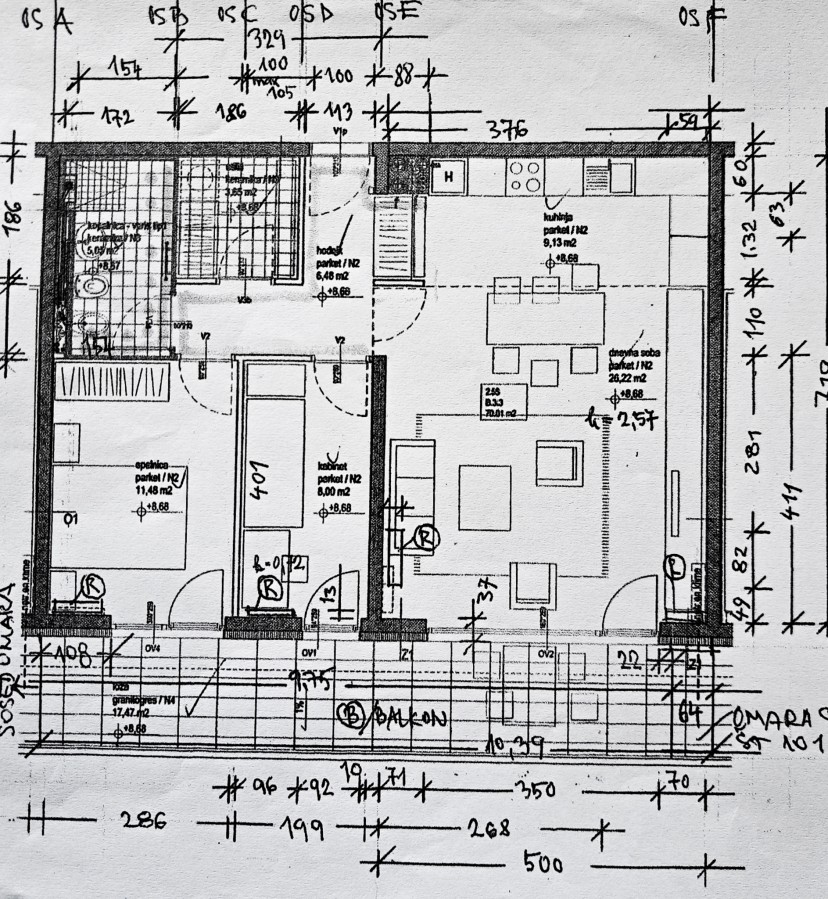 OS A OS B OS C OS D OS E OS F
329
154 100 100 88
max
105
172 186 113
376 59
V1p
186
60
63
132
110
281
411
82
49
710
H
utility
keramika / N3
3,65 m2
+8,68
kopalnica - varis tip1
keramika / N3
+8,67
hodnik
parket / N2
6,48 m2
+8,68
kuhinja
parket / N2
9,13 m2
+8,68
V3b
V2
V2
154
dnevna soba
parket / N2
26,22 m2
+8,68
h=2,57
2.5S
B.3.3
70.01 m2
spalnica
parket / N2
11,48 m2
+8,68
401
kabinet
parket / N2
8,00 m2
+8,68
O1
h=0,72
13
37
R
R
R
R
SOSED OMARA
108
OV4
OV1
Z1
OV2
22
9,75
loža
granitogres / N4
17,47 m2
+8,68
1%
B/BALKON
64
10,39
OMARA
101
96 92 19 71 350 70
286 199 268
500